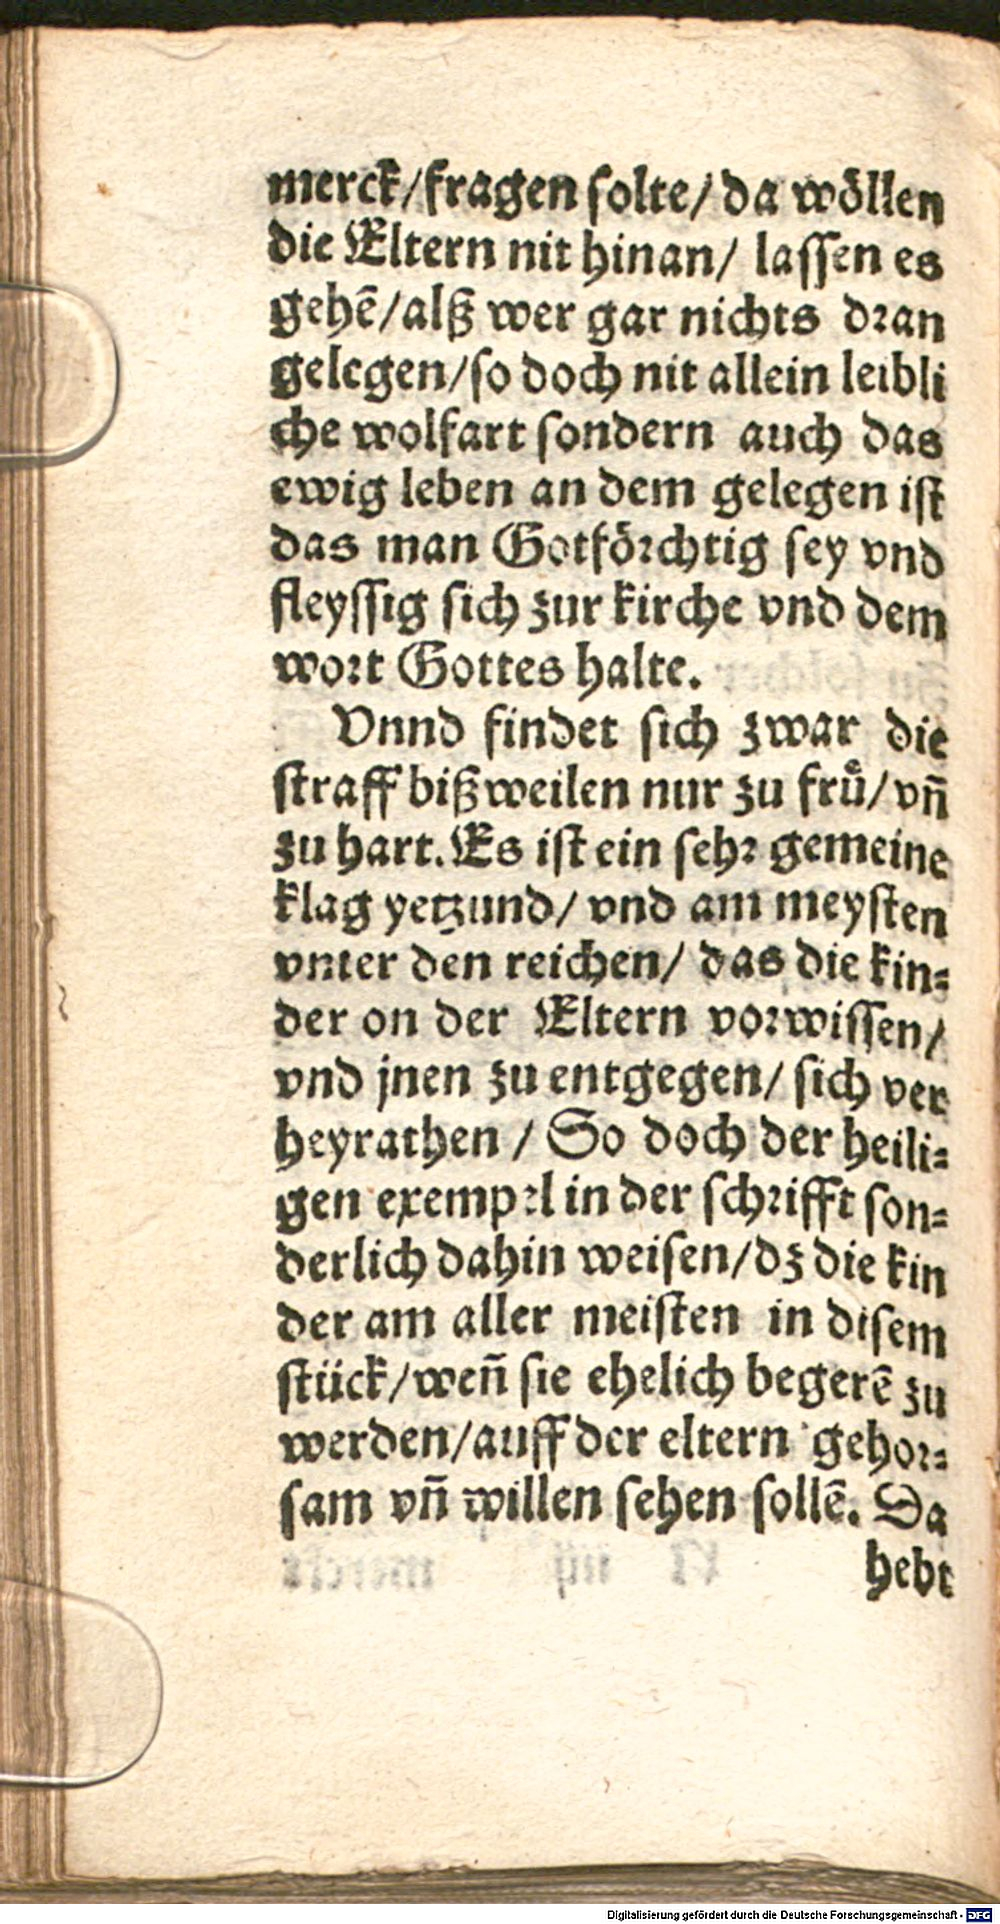 merck/fragen solte/ da wöllen
die Eltern nit hinan/ lassen es
gehẽ/alß wer gar nichts dran
gelegen/so doch nit allein leibli
che wolfart sondern auch das
ewig leben an dem gelegen ist
das man Gotförchtig sey vnd
fleyssig sich zur kirche vnd dem
wort Gottes halte.
Vnnd findet sich zwar die
straff bißweilen nur zu fruͤ/vñ
zu hart. Es ist ein sehr gemeine
klag yetzund/ vnd am meysten
vnter den reichen/ das die kin=
der on der Eltern vorwissen/
vnd jnen zu entgegen/ sich ver
heyrathen / So doch der heili=
gen exempel in der schrifft son=
derlich dahin weisen/dz die kin
der am aller meisten in disem
stück/weñ sie ehelich begerẽ zu
werden/auff der eltern gehor=
sam vñ willen sehen sollẽ. Da
hebt
Digitalisierung gefördert durch die Deutsche Forschungsgemeinschaft - DFG